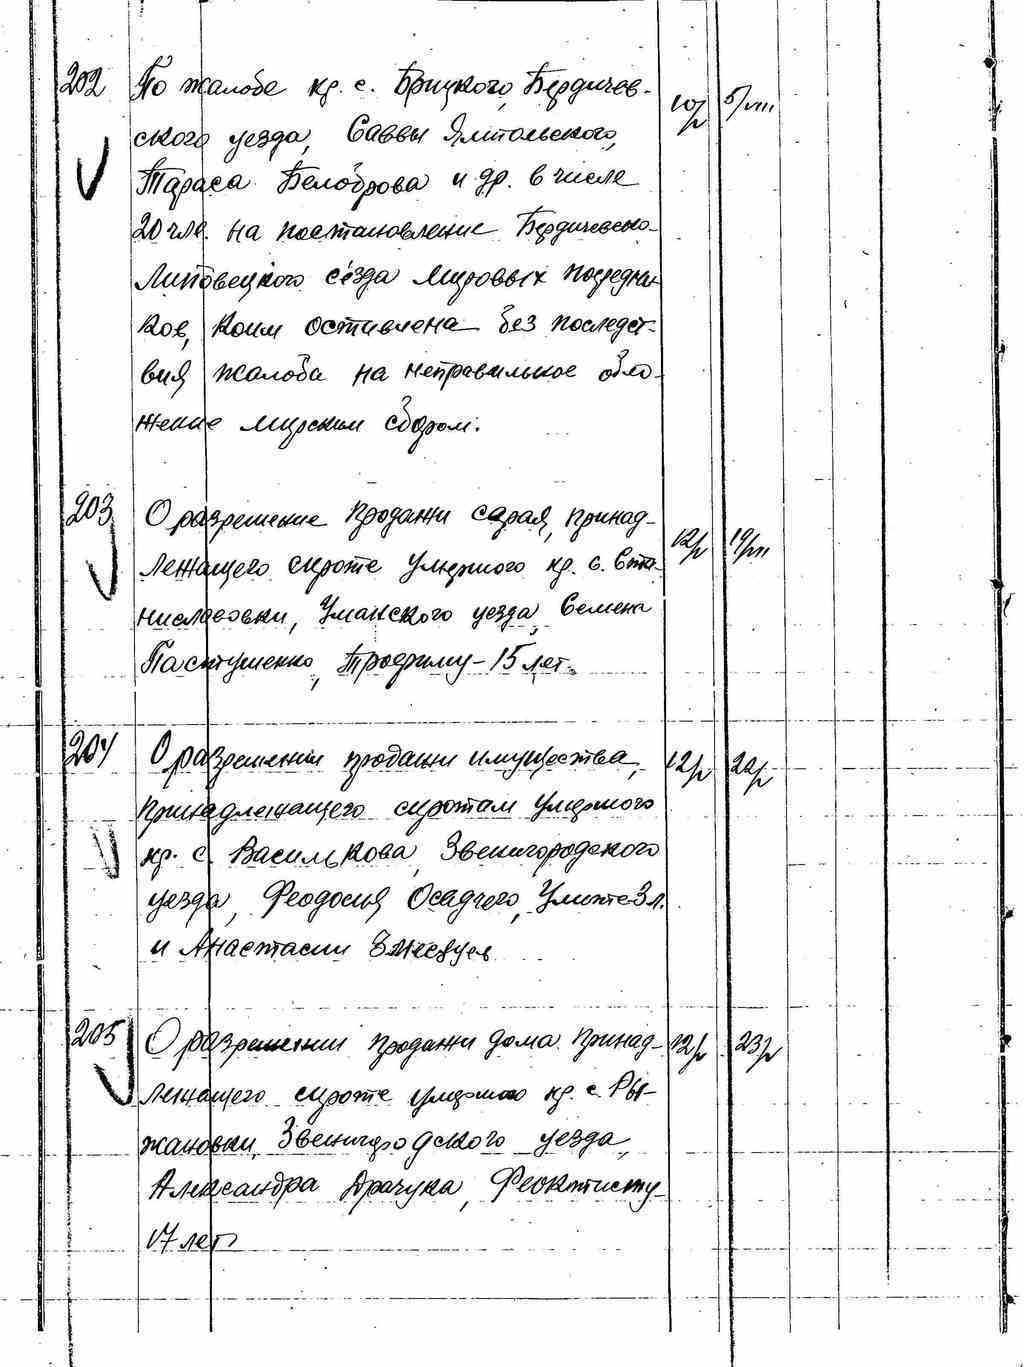 202 По жалобе кр. с. Брицкого, Бердичев- 10/р 5/VIII
ского уезда, Саввы Ямпольского,
Тараса Белоброва и др. в числе
20 чле. на постановление Бердичевско-
Липовецкого сезда мировых посредни-
ков, коим оставлена без последст-
вия жалоба на неправильное обло-
жение мирским сбором.
203 О разрешение продажи сарая, принад- 12/р
лежащего сироте умершого кр. с. Ста-
ниславовки, Уманского уезда, Семена
Пастушенко, Трофиму - 15 лет.
204 О разрешении продажи имущества, 12/р 22/р
принадлежащего сиротам умершого
кр. с. Василькова, Звенигородского
уезда, Феодосия Осадчего, 3 л.
и Анастасии
205 О разрешении продажи дома принад- 12/р 23/р
лежащего сироте умершого кр. с. Ры-
жановки, Звенигородского уезда,
Александра Драчука, Феоктисту
17 лет